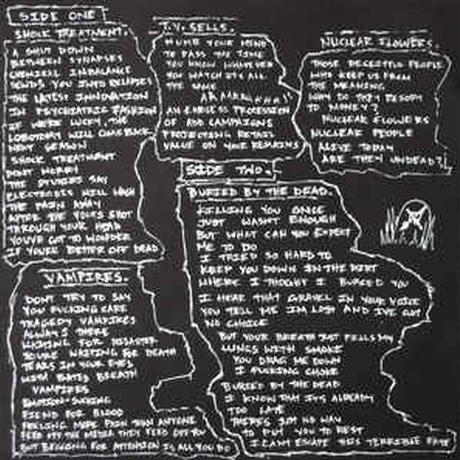 SIDE ONE
SHOCK TREATMENT.
A SHUT DOWN
BETWEEN SYNAPSES
CHEMICAL IMBALANCE
SENDS YOU INTO RELAPSES
THE LATEST INNOVATION
IN PSYCHIATRIC FASHION
IF WE'RE LUCKY, THE
LOBOTOMY WILL COME BACK
NEXT SEASON
SHOCK TREATMENT
DON'T WORRY
THE STUDIES SAY
ELECTRODES WILL WASH
THE PAIN AWAY
AFTER THE VOLTS SHOT
THROUGH YOUR HEAD
YOU'VE GOT TO WONDER
IF YOU'RE BETTER OFF DEAD
VAMPIRES.
DON'T TRY TO SAY
YOU FUCKING CARE
TRAGEDY VAMPIRES
ALWAYS THERE
WAITING FOR DISASTER
YOU'RE WAITING FOR DEATH
TEARS IN YOUR EYES
WITH BATED BREATH
VAMPIRES
EMOTION-SUCKING
FIEND FOR BLOOD
FEELING MORE PAIN THAN ANYONE
FEED OFF THE MEDIA THEY FEED OFF YOU
BUT BEGGING FOR ATTENTION IS ALL YOU DO
T.V. SELLS.
NUMB YOUR MIND
TO PASS THE TIME
YOU KNOW WHATEVER
YOU WATCH IT'S ALL
THE SAME
AN ENDLESS PROCESSION
OF ADD CAMPAIGNS
PROJECTING RETAIL
VALUE ON YOUR REMAINS
NUCLEAR FLOWERS.
THOSE DECEITFUL PEOPLE
WHO KEEP US FROM
THE MEANING
WHY DO THEY RESORT
TO MONEY?
NUCLEAR FLOWERS
NUCLEAR PEOPLE
ALIVE TODAY
ARE THEY UNDEAD?
SIDE TWO.
BURIED BY THE DEAD.
KILLING YOU ONCE
JUST WASN'T ENOUGH
BUT WHAT CAN YOU EXPECT
ME TO DO
I TRIED SO HARD TO
KEEP YOU DOWN IN THE DIRT
WHERE I THOUGHT I BURIED YOU
I HEAR THAT GRAVEL IN YOUR VOICE
YOU TELL ME IM LOST AND I'VE GOT
NO CHOICE
BUT YOUR BREATH JUST FILLS MY
LUNGS WITH SMOKE
YOU DRAG ME DOWN
I FUCKING CHOKE
BURIED BY THE DEAD
I KNOW THAT IT'S ALREADY
TOO LATE
THERE'S JUST NO WAY
TO PUT YOU TO REST
I CAN'T ESCAPE THIS TERRIBLE FATE